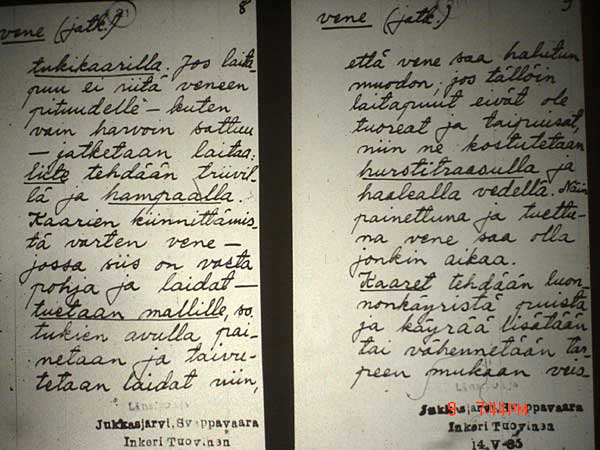 vene (jatk.) 8
tukikaarilla. Jos laita-
puu ei riitä veneen
pituudelle – kuten
vain harvoin sattuu
– jatketaan laitaa;
liite tehdään triivil-
lä ja hampaalla.
Kaarien kiinnittämis-
tä varten vene –
jossa siis on vasta
pohja ja laidat –
tuetaan mallille, so.
tukien avulla pai-
netaan ja taivu-
tetaan laidat niin,
Jukkasjärvi, Svappavaara
Inkeri Tuovinen
vene (jatk.) 9
että vene saa halutun
muodon; jos tällöin
laitapuut eivät ole
tuoreat ja taipuisat,
niin ne kostutetaan
hurstitraasulla ja
haalealla vedellä. Näin
painettuna ja tuettu-
na vene saa olla
jonkin aikaa.
Kaaret tehdään luon-
nonkäyristä puista
ja käyrää lisätään
tai vähennetään tar-
peen mukaan veis-
Jukkasjärvi, Svappavaara
Inkeri Tuovinen
14.V-85
9 7:44PM